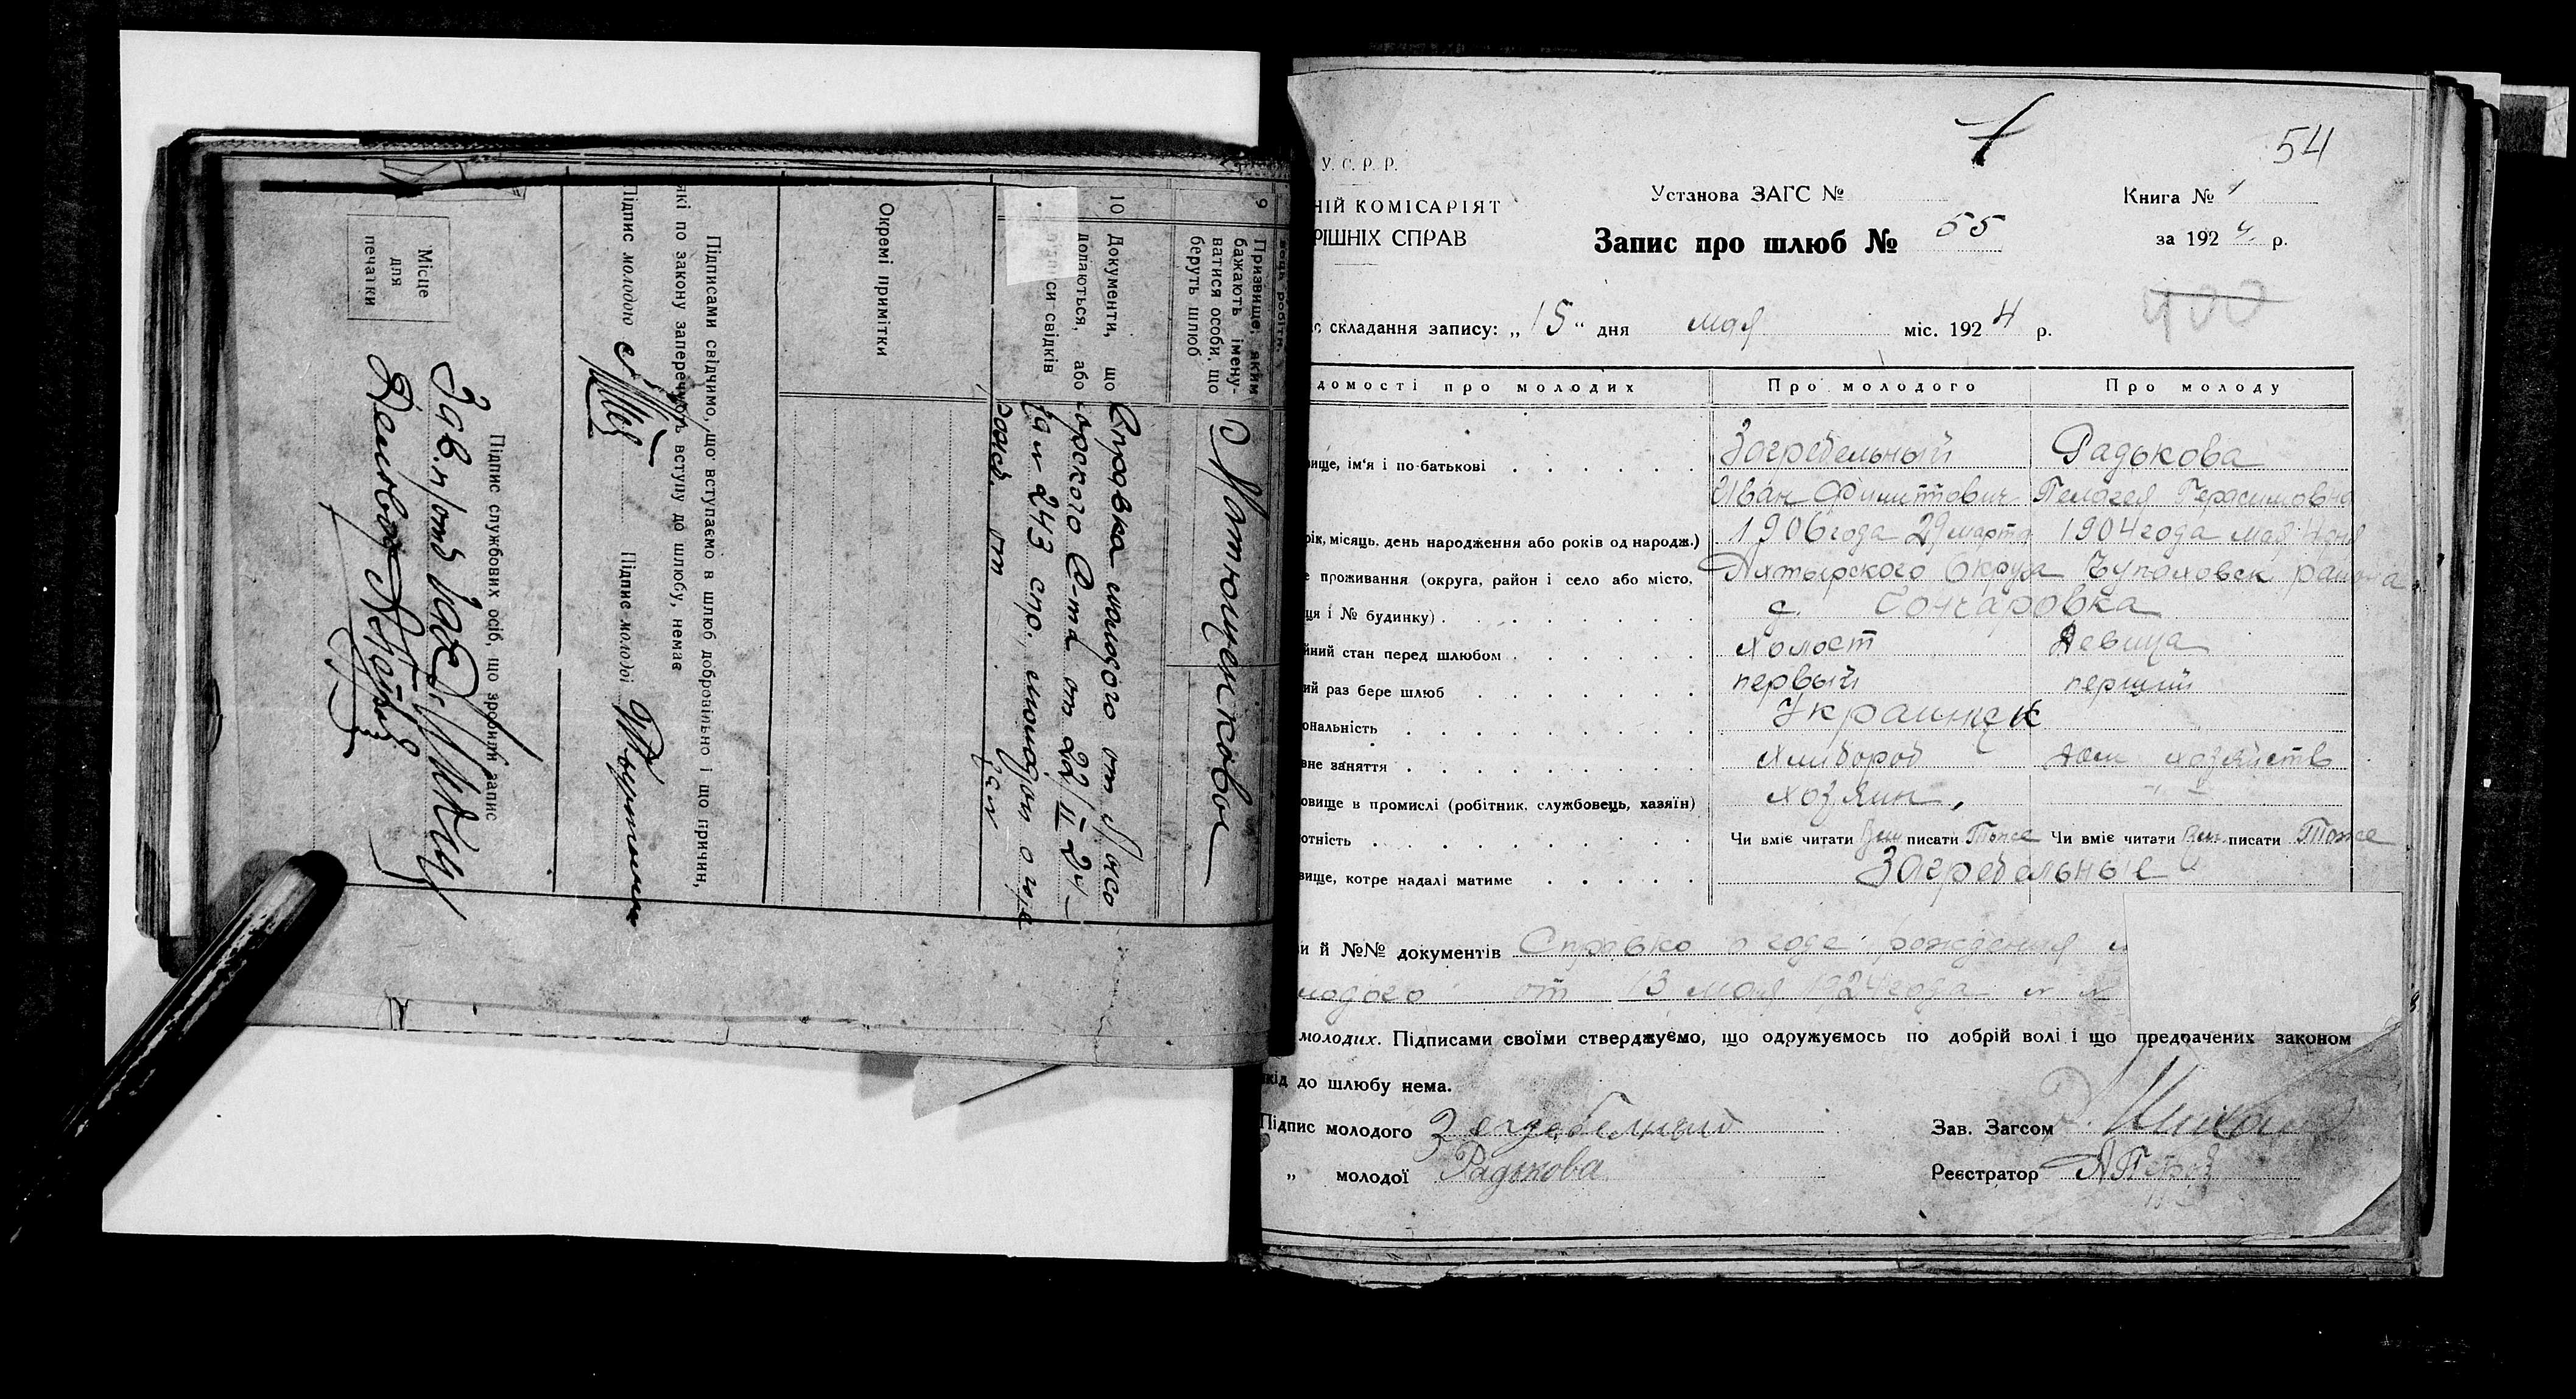 9
Призвище, яким
бажають імену-
ватися особи, що
беруть шлюб
Матющенковы
10
Документи, що
додаються, або
си свідків
Справка молодого от
от 22/II 24
243 спр. молодой о годе
рожд. от
Окремі примітки
Підписами свідчимо, що вступаємо в шлюб добровільно і що причин,
які по закону заперечують вступу до шлюбу, немає
Підпис молодого
Підпис молодої
Підпис службових осіб, що зробили запис
Місце
для
печатки
Зав. п/отд
54
У. С. Р. Р.
НІЙ КОМІСАРІЯТ
РІШНІХ СПРАВ
Установа ЗАГС №
Книга № 1
Запис про шлюб № 55
за 1924 р.
400
с складання запису: „15“ дня мая міс. 1924 р.
домості про молодих
Про молодого
Про молоду
вище, ім'я і по-батькові
Загребельный
Радькова
Иван Филиппович
Пелагея Герасимовна
рік, місяць, день народження або років од народж.)
1906 года 29 марта
1904 года мая 4 дня
е проживання (округа, район і село або місто,
Ахтырского Округа Чупаховск района
ця і № будинку)
с. Гончаровка
йний стан перед шлюбом
холост
девица
ий раз бере шлюб
первый
перший
ональність
Украинцы
вне заняття
хлибороб
дом хозяйств
овище в промислі (робітник, службовець, хазяїн)
хозяин,
отність
Чи вміє читати Вм писати Тоже
Чи вміє читати Вм писати Тоже
вище, котре надалі матиме
Загребельные
и й №№ документів Справка о годе рождения
молодого от 13 мая 1924 года
молодих. Підписами своїми стверджуємо, що одружуємось по добрій волі і що предбачених законом
кід до шлюбу нема.
Підпис молодого Загребелный
Зав. Загсом
„ молодої Радькова
Реєстратор АПетров